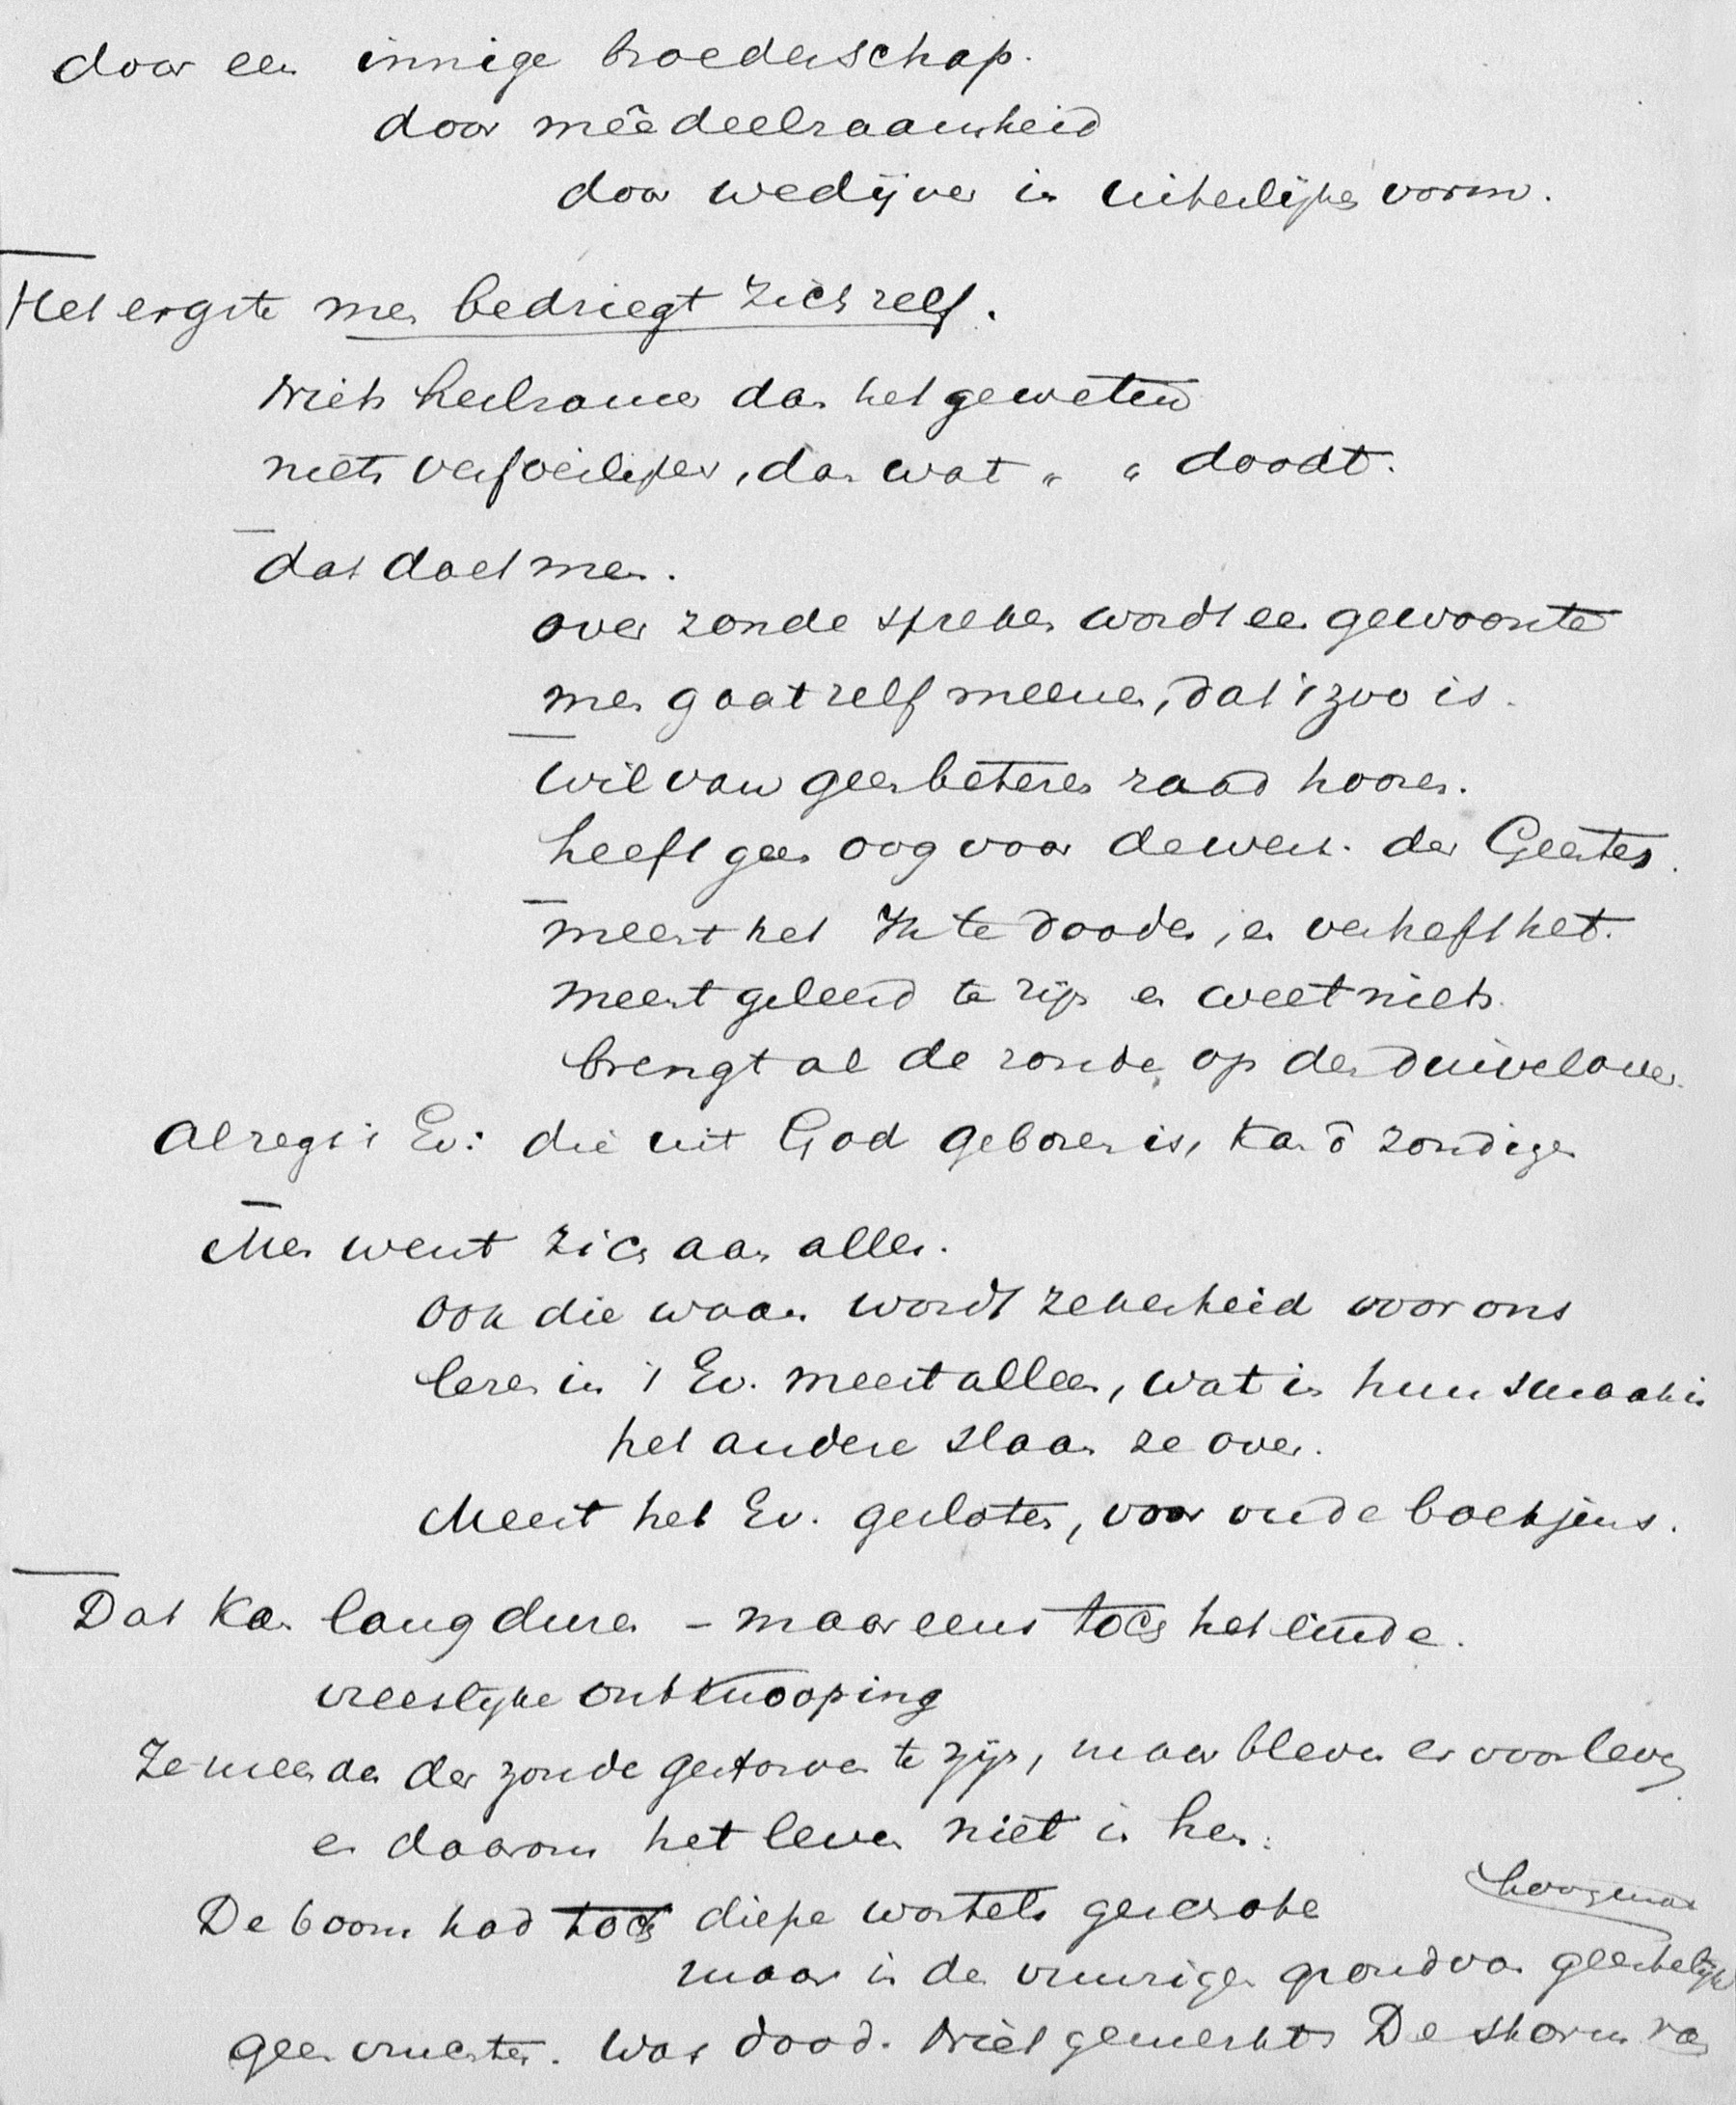 door een innige broederschap.
door mêedeelzaamheid
door wedijver in uiterlijken vorm.
Het ergste men bedriegt zich zelf.
Niets heilzamer dan het geweten
niets verfoeilijker, dan wat " " doodt.
dat doet men.
over zonde spreken wordt een gewoonte
men gaat zelf meenen, dat 't zoo is.
wil van geen beteren raad hooren.
heeft geen oog voor de werk. des Geestes.
meent het Ik te dooden, en verheft het.
meent geleerd te zijn en weet niets.
brengt al de zonde op den duivel over.
Al zegt 't Ev: die uit God geboren is, kan õ zondigen
Men went zich aan alles.
ook die waan wordt zekerheid voor ons
lezen in 't Ev. meest alleen, wat in hun smaak is
het andere slaan ze over.
Meest het Ev. gesloten, voor oude boekjens.
Dat kan lang duren – maar eens toch het einde.
vreeslijke ontknooping
Ze meenden der zonde gestorven te zijn, maar bleven er voor leven
en daarom het leven niet in hen.
De boom had toch diepe wortels geschoten
maar in den vunzigen grond van geestelijke
hoogmoed
geen vruchten. Was dood. Niet gemerkt. De storm van